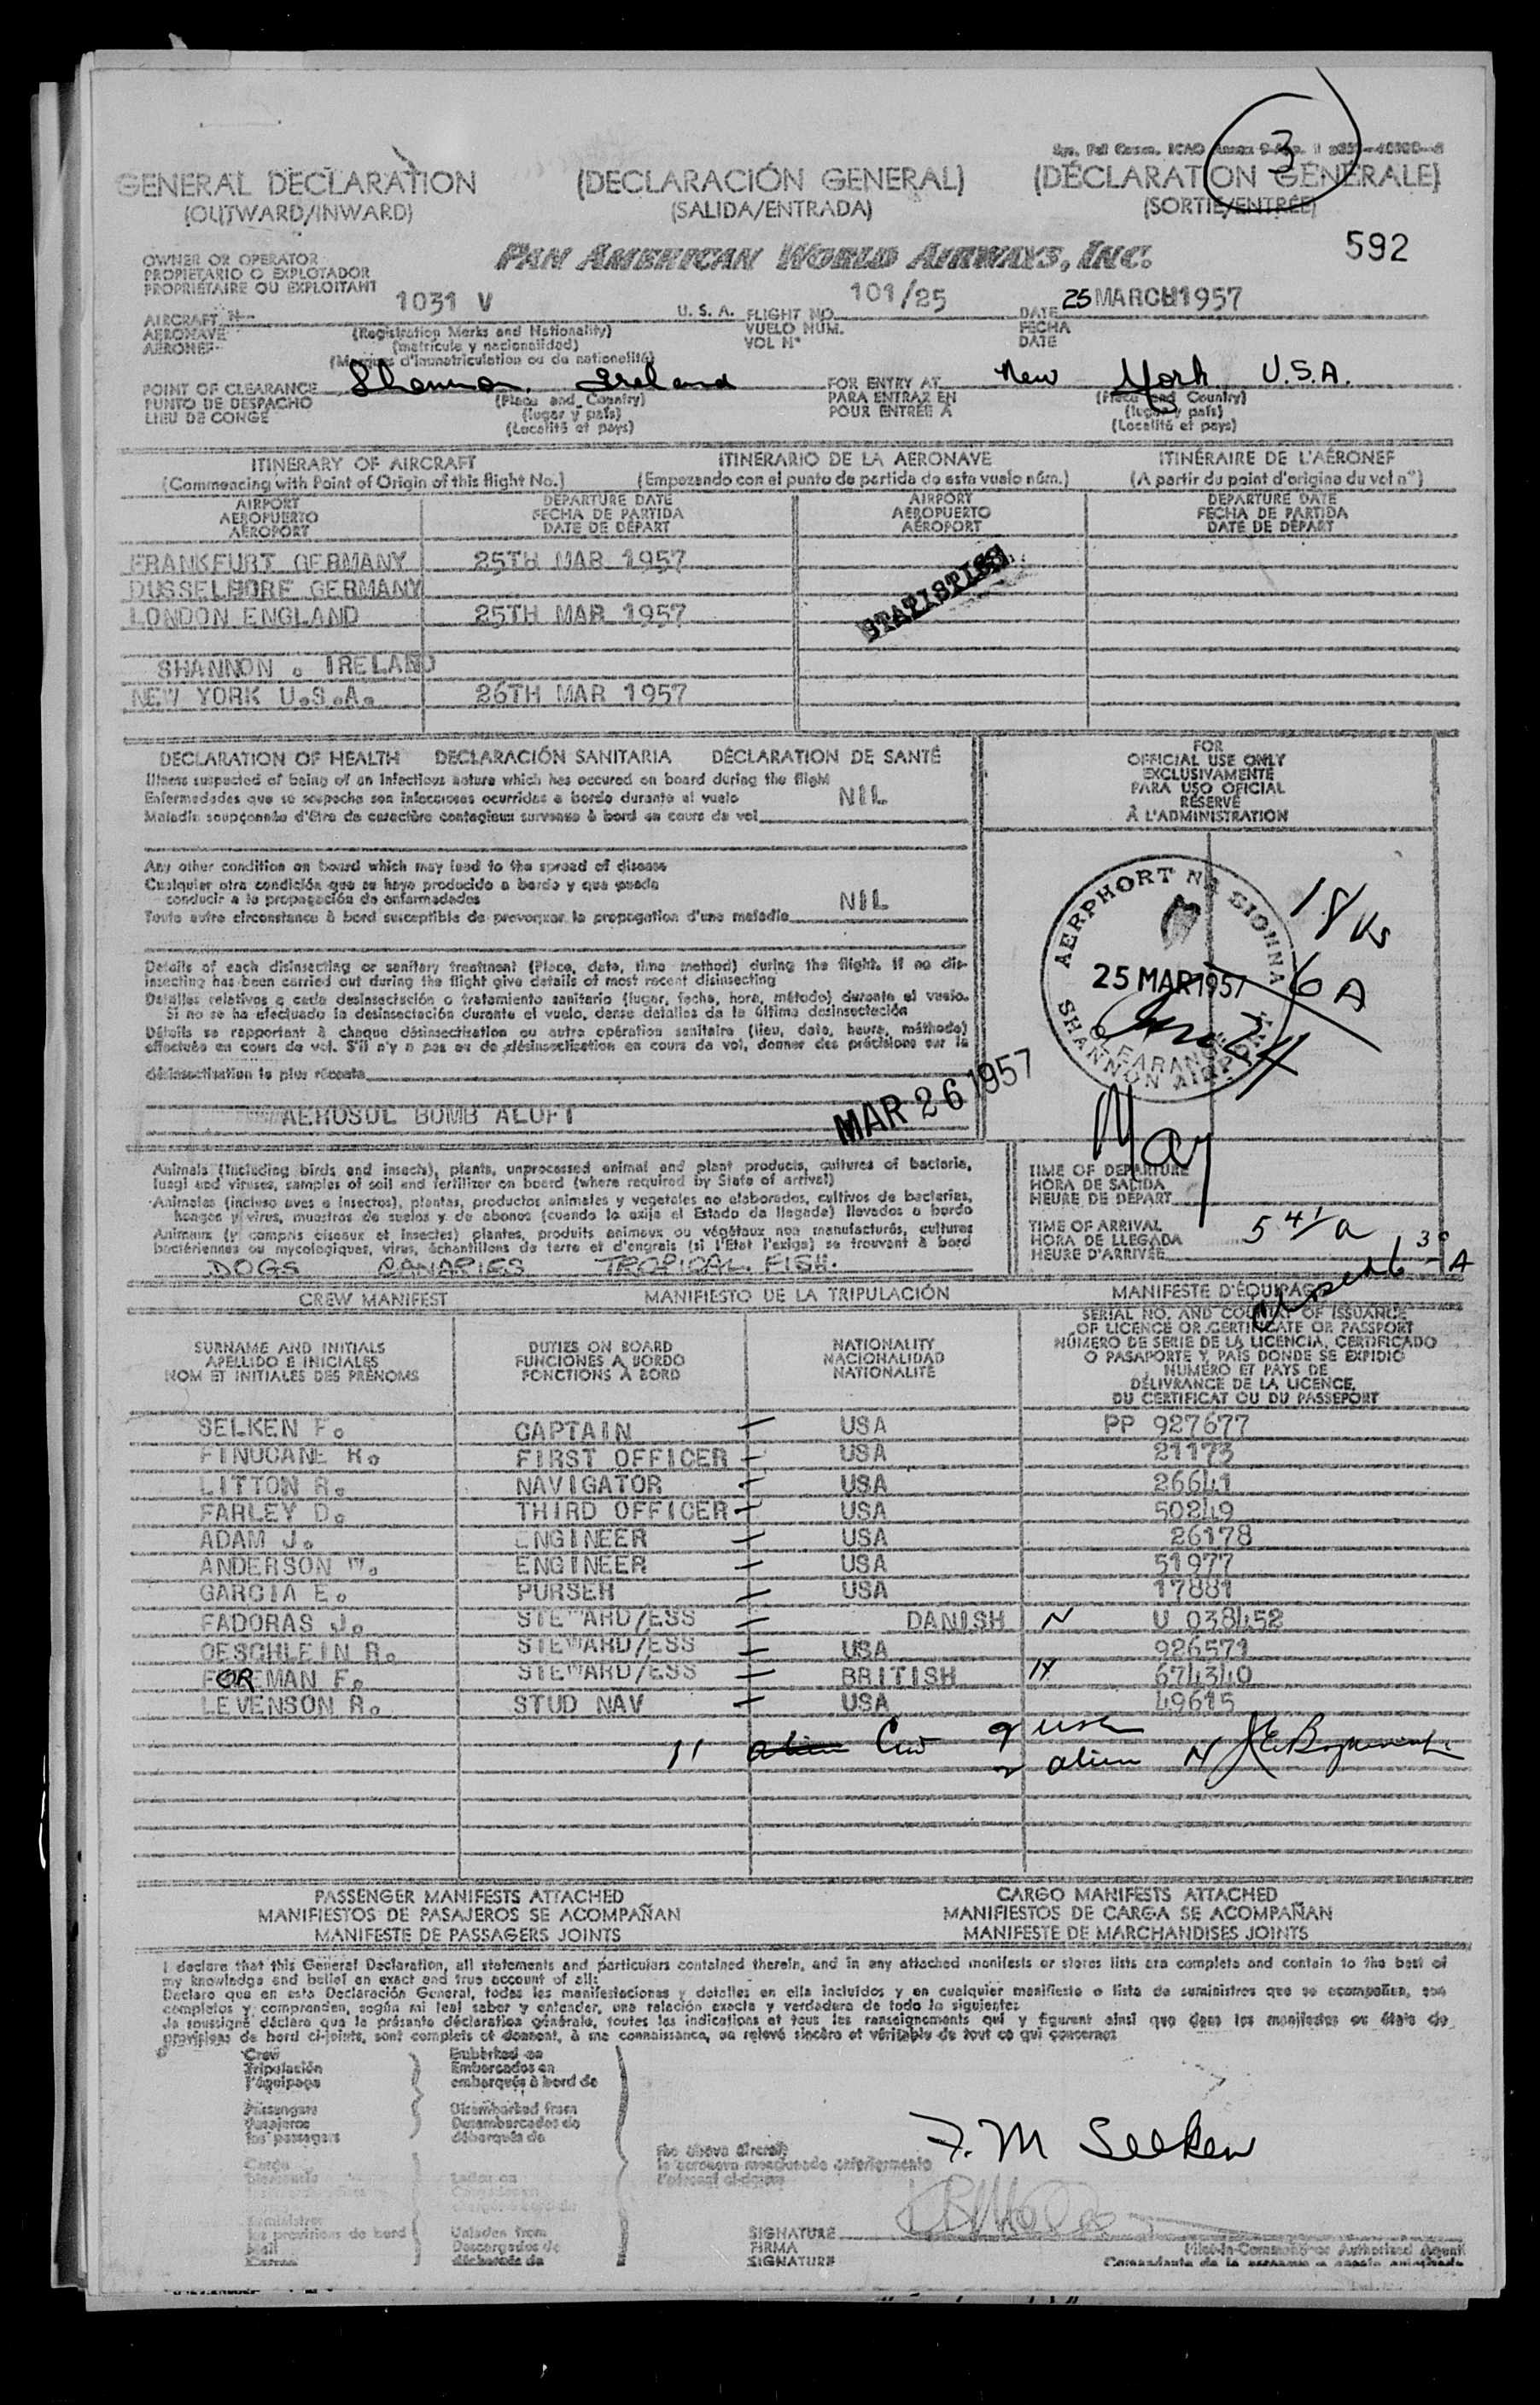 3
GENERAL DECLARATION (DECLARACIÓN GENERAL) (DÉCLARATION GÉNÉRALE)
(OUTWARD/INWARD) (SALIDA/ENTRADA) (SORTIE/ENTRÉE)
592
OWNER OR OPERATOR
PROPIETARIO O EXPLOTADOR
PROPRIÉTAIRE OU EXPLOITANT
PAN AMERICAN WORLD AIRWAYS, INC.
1031 V 101/25 25 MARCH 1957
AIRCRAFT N- U. S. A. FLIGHT NO. DATE
AERONAVE (Registration Marks and Nationality) VUELO NÚM. FECHA
AÉRONEF (matrícula y nacionalidad) VOL Nº DATE
(Marques d'immatriculation ou de nationalité)
POINT OF CLEARANCE Shannon Ireland FOR ENTRY AT New York U.S.A.
PUNTO DE DESPACHO (Place and Country) PARA ENTRAR EN (Place and Country)
LIEU DE CONGÉ (lugar y país) POUR ENTRÉE À (lugar y país)
(Localité et pays) (Localité et pays)
ITINERARY OF AIRCRAFT ITINERARIO DE LA AERONAVE ITINÉRAIRE DE L'AÉRONEF
(Commencing with Point of Origin of this flight No.) (Empezando con el punto de partida de este vuelo núm.) (A partir du point d'origine du vol nº)
AIRPORT DEPARTURE DATE AIRPORT DEPARTURE DATE
AEROPUERTO FECHA DE PARTIDA AEROPUERTO FECHA DE PARTIDA
AÉROPORT DATE DE DÉPART AÉROPORT DATE DE DÉPART
FRANKFURT GERMANY 25TH MAR 1957
DUSSELDORF GERMANY
LONDON ENGLAND 25TH MAR 1957
STATISTICS
SHANNON . IRELAND
NEW YORK U.S.A. 26TH MAR 1957
DECLARATION OF HEALTH DECLARACIÓN SANITARIA DÉCLARATION DE SANTÉ
Illness suspected of being of an infectious nature which has occured on board during the flight
Enfermedades que se sospecha son infecciosas ocurridas a bordo durante el vuelo NIL
Maladie soupçonnée d'être de caractère contagieux survenue à bord en cours de vol
FOR
OFFICIAL USE ONLY
EXCLUSIVAMENTE
PARA USO OFICIAL
RÉSERVÉ
À L'ADMINISTRATION
Any other condition on board which may lead to the spread of disease
Cualquier otra condición que se haya producido a bordo y que pueda
conducir a la propagación de enfermedades NIL
Toute autre circonstance à bord susceptible de provoquer la propagation d'une maladie
Details of each disinsecting or sanitary treatment (Place, date, time method) during the flight. If no dis-
insecting has been carried out during the flight give details of most recent disinsecting
Detalles relativos a cada desinsectación o tratamiento sanitario (lugar, fecha, hora, método) durante el vuelo.
Si no se ha efectuado la desinsectación durante el vuelo, dense detalles de la última desinsectación
Détails se rapportant à chaque désinsectisation ou autre opération sanitaire (lieu, date, heure, méthode)
effectuée en cours de vol. S'il n'y a pas eu de désinsectisation en cours de vol, donner des précisions sur la
désinsectisation la plus récente
AEROSOL BOMB ALOFT
MAR 26 1957
AERPHORT NA SIONNA
25 MAR 1957
SHANNON AIRPORT
6 A
May
Animals (including birds and insects), plants, unprocessed animal and plant products, cultures of bacteria,
fungi and viruses, samples of soil and fertilizer on board (where required by State of arrival)
Animales (incluso aves e insectos), plantas, productos animales y vegetales no elaborados, cultivos de bacterias,
hongos y virus, muestras de suelos y de abonos (cuando lo exija el Estado de llegada) llevados a bordo
Animaux (y compris oiseaux et insectes) plantes, produits animaux ou végétaux non manufacturés, cultures
bactériennes ou mycologiques, virus, échantillons de terre et d'engrais (si l'État l'exige) se trouvant à bord
DOGS CANARIES TROPICAL FISH.
TIME OF DEPARTURE
HORA DE SALIDA
HEURE DE DÉPART
TIME OF ARRIVAL
HORA DE LLEGADA 5 41 a
HEURE D'ARRIVÉE
6 30 A
CREW MANIFEST MANIFIESTO DE LA TRIPULACIÓN MANIFESTE D'ÉQUIPAGE
SURNAME AND INITIALS DUTIES ON BOARD NATIONALITY SERIAL NO. AND COUNTRY OF ISSUANCE
APELLIDO E INICIALES FUNCIONES A BORDO NACIONALIDAD OF LICENCE OR CERTIFICATE OR PASSPORT
NOM ET INITIALES DES PRÉNOMS FONCTIONS À BORD NATIONALITÉ NÚMERO DE SERIE DE LA LICENCIA, CERTIFICADO
O PASAPORTE Y PAÍS DONDE SE EXPIDIÓ
NUMÉRO ET PAYS DE
DÉLIVRANCE DE LA LICENCE,
DU CERTIFICAT OU DU PASSEPORT
SELKEN F. CAPTAIN USA PP 927677
FINUCANE R. FIRST OFFICER USA 21173
LITTON R. NAVIGATOR USA 26641
FARLEY D. THIRD OFFICER USA 50249
ADAM J. ENGINEER USA 26178
ANDERSON W. ENGINEER USA 51977
GARCIA E. PURSER USA 17881
FADORAS J. STEWARD/ESS DANISH N U 038452
OESCHLEIN R. STEWARD/ESS USA 926571
FOREMAN F. STEWARD/ESS BRITISH N 674340
LEVENSON R. STUD NAV USA 49615
11 alien Crew 9 USA
2 alien N
PASSENGER MANIFESTS ATTACHED CARGO MANIFESTS ATTACHED
MANIFIESTOS DE PASAJEROS SE ACOMPAÑAN MANIFIESTOS DE CARGA SE ACOMPAÑAN
MANIFESTE DE PASSAGERS JOINTS MANIFESTE DE MARCHANDISES JOINTS
I declare that this General Declaration, all statements and particulars contained therein, and in any attached manifests or stores lists are complete and contain to the best of
my knowledge and belief an exact and true account of all:
Declaro que en esta Declaración General, todas las manifestaciones y detalles en ella incluidos y en cualquier manifiesto o lista de suministros que se acompañen, son
completos y comprenden, según mi leal saber y entender, una relación exacta y verdadera de todo lo siguiente:
Je soussigné déclare que la présente déclaration générale, toutes les indications et tous les renseignements qui y figurent ainsi que dans les manifestes ou états de
provisions de bord ci-joints, sont complets et donnent, à ma connaissance, un relevé sincère et véritable de tout ce qui concerne:
Crew Embarked on
Tripulación Embarcados en
l'équipage embarqués à bord de
Passengers Disembarked from
Pasajeros Desembarcados de
les passagers débarqués de
the above aircraft
la aeronave mencionada anteriormente
F. M Selken
les provisions de bord Unladen from
Descargados de
SIGNATURE Pilot-in-Command or Authorized Agent
FIRMA
SIGNATURE